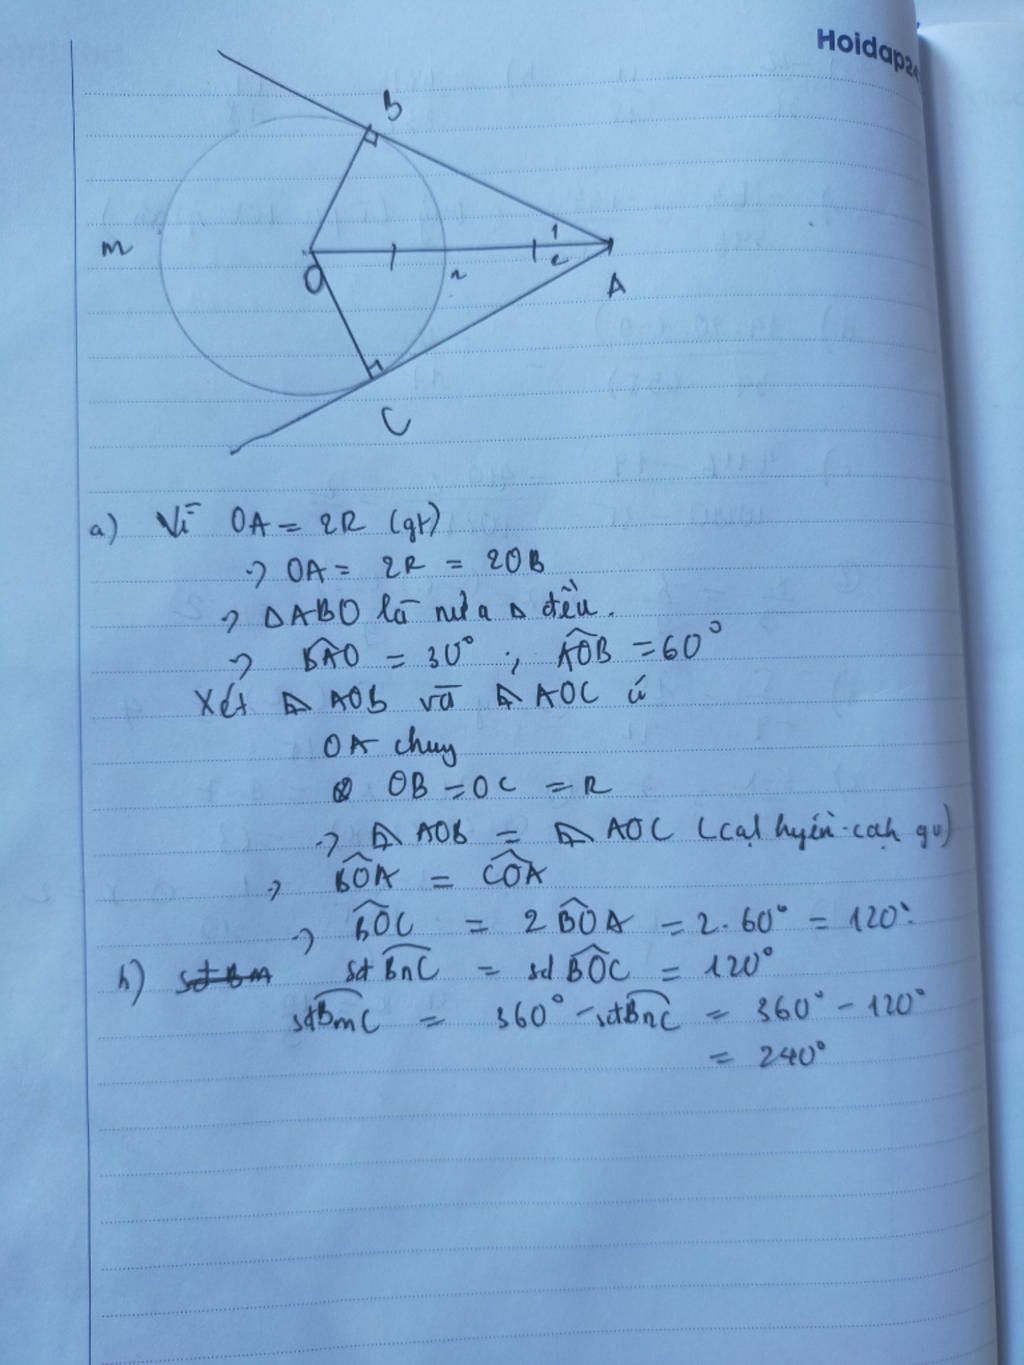 Hoidap24
B
m
O
n
1
2
A
C
a) Vì OA = 2R (gt)
→ OA = 2R = 2OB
→ ΔABO là nửa Δ đều.
→ BAO = 30° ; AOB = 60°
Xét ⊿ AOB và ⊿ AOC có
OA chung
OB = OC = R
→ ⊿ AOB = ⊿ AOC (cạh huyền-cạh gv)
→ BOA = COA
→ BOC = 2 BOA = 2.60° = 120°
b) sđ BnC = sđ BOC = 120°
sđ BmC = 360° - sđ BnC = 360° - 120°
= 240°